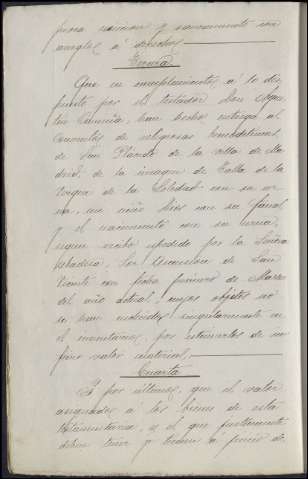 para            y            con
arreglo á derecho.
Tercera
Que en cumplimiento, á lo dis-
puesto por el testador Don Agus-
tin            han hecho entrega al
Convento de religiosas benedictinas
de San Plácido de la villa de Ma-
drid, de la imagen de talla de la
Virgen de la Soledad con su ur-
na, un niño Dios con su fanal
y el nacimiento con su urna,
segun recibo espedido por la Señora
Abadesa, Sor            de San
Vicente con fecha primero de Marzo
del año actual, cuyos objetos no
se han incluido            en
el inventario, por estimarlos de un
            valor material.
Cuarta
Y por último, que el valor
asignado á los bienes de esta
testamentaria es el que justamente
deben tener y tienen á juicio de